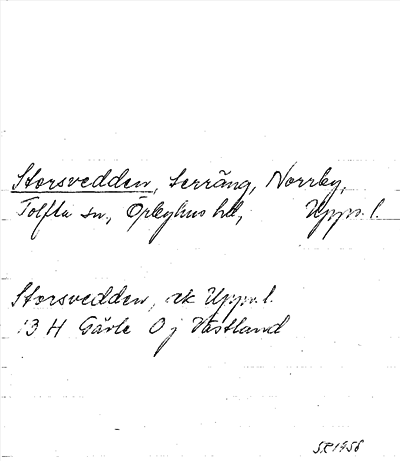 Storsvedden, terräng, Norrby,
Tolfta sn, Örbyhus hd, Upps. l.
Storsvedden, ek Upps. l.
13 H Gävle 0 j Västland
S.E 1956